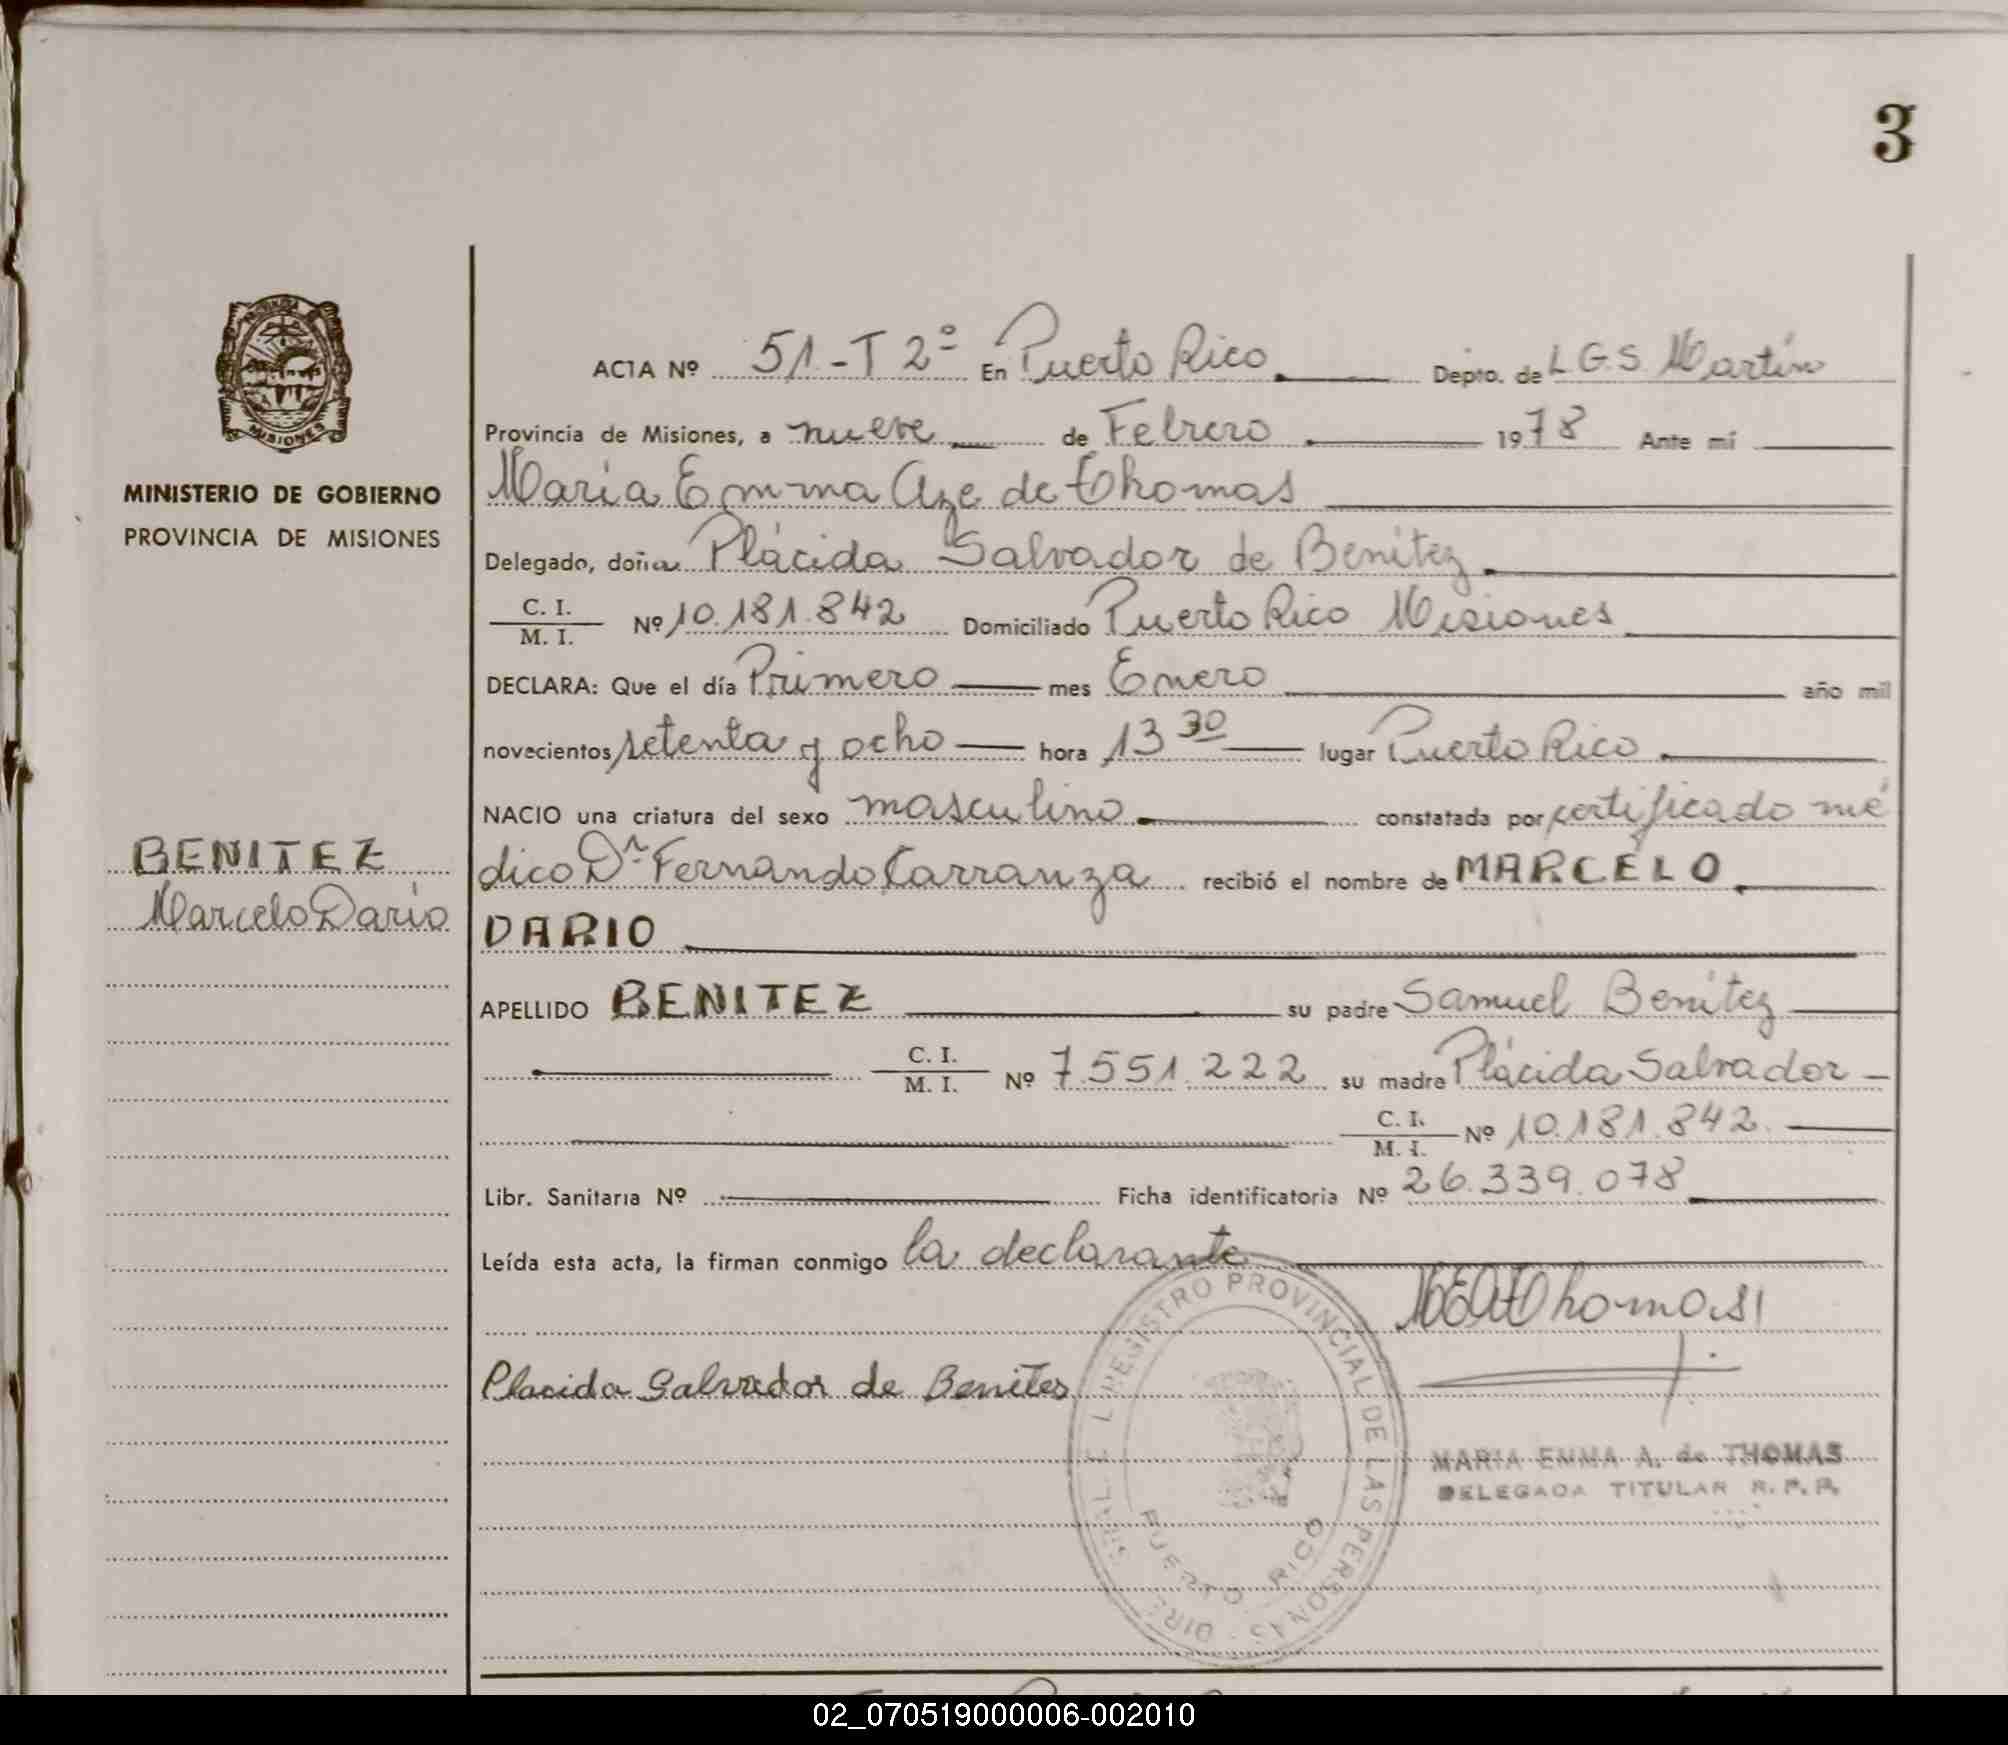 3
ACTA Nº 51-T 2º En Puerto Rico Depto. de L.G.S. Martín
Provincia de Misiones, a nueve de Febrero 1978 Ante mí
María Emma Aze de Thomas
MINISTERIO DE GOBIERNO
PROVINCIA DE MISIONES
Delegado, doña Plácida Salvador de Benítez
C. I.
M. I.
Nº 10.181.842 Domiciliado Puerto Rico Misiones
DECLARA: Que el día Primero mes Enero año mil
novecientos setenta y ocho hora 13 30 lugar Puerto Rico
NACIO una criatura del sexo masculino constatada por certificado mé
dico Dr. Fernando Carranza recibió el nombre de MARCELO
BENITEZ
Marcelo Darío
DARIO
APELLIDO BENITEZ su padre Samuel Benítez
C. I.
M. I.
Nº 7.551.222 su madre Plácida Salvador
C. I.
M. I.
Nº 10.181.842
Libr. Sanitaria Nº Ficha identificatoria Nº 26.339.078
Leída esta acta, la firman conmigo la declarante
MEAThomas
Placida Salvador de Benites
REGISTRO PROVINCIAL DE LAS PERSONAS
PUERTO RICO
MARIA EMMA A. de THOMAS
DELEGADA TITULAR R.P.P.
MISIONES
02_070519000006-002010